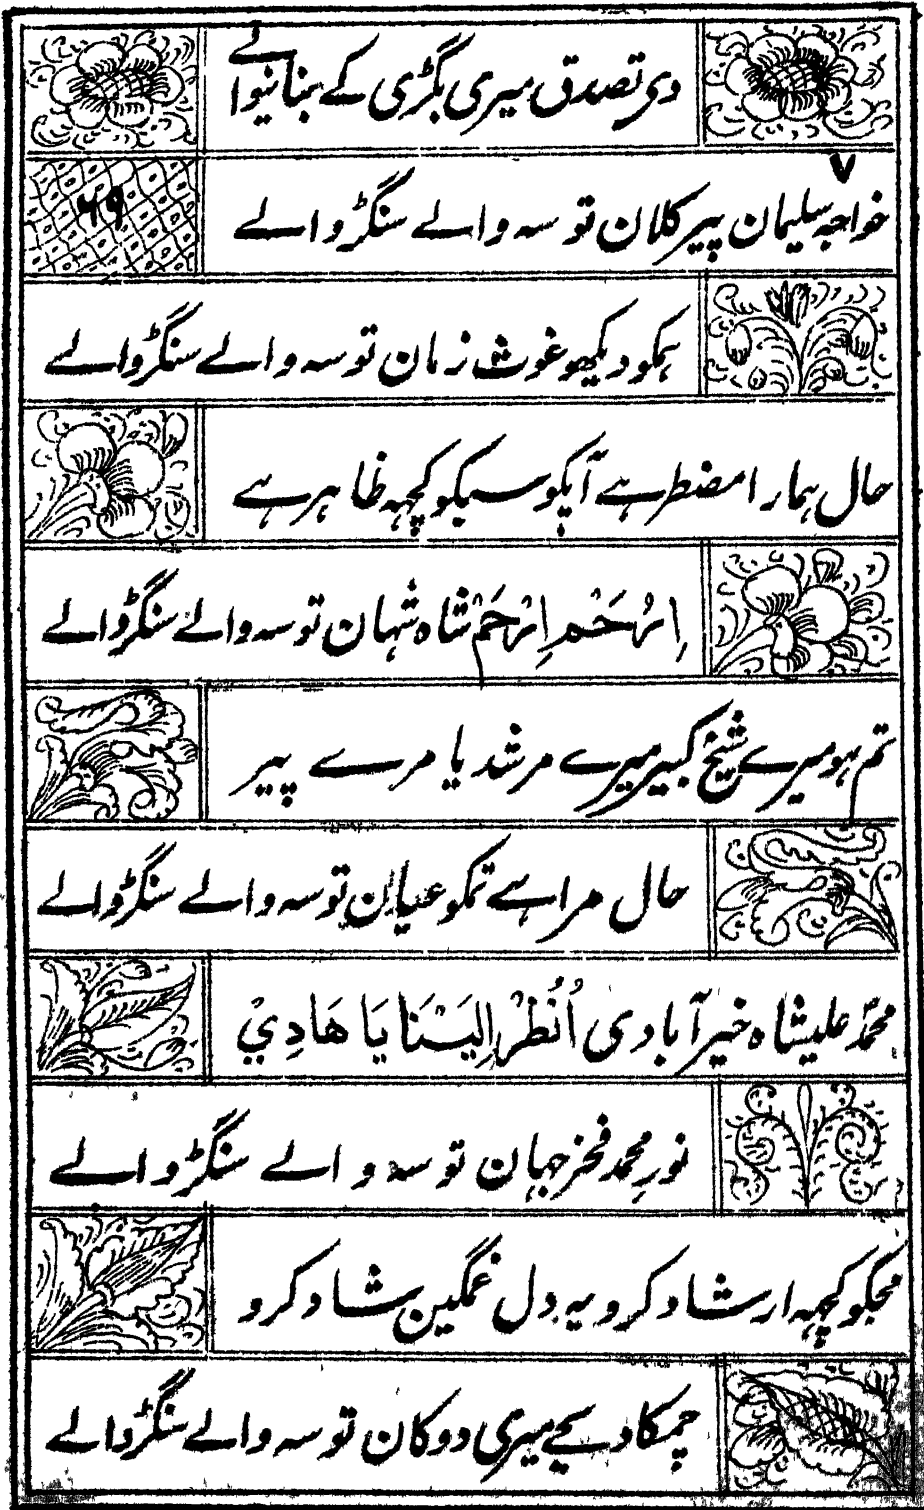 دی تصدق میری بگڑی کے بنانیوالے
۷
خواجہ سلیمان پیر کلان توسہ والے سنگڑوالے
۶۹
ہمکو دیکھو غوث زمان توسہ والے سنگڑوالے
حال ہمارا مضطر ہے آپکو سبکو کچہہ ظاہر ہے
اِرْحَمْ اِرْحَمْ شاہ شہان توسہ والے سنگڑوالے
تم ہو میرے شیخ کبیر میرے مرشد یا مرے پیر
حال مرا ہے تمکو عیان توسہ والے سنگڑوالے
محمّد علیشاہ خیرآبادی اُنْظُرْ اِلَیْنَا یَا ھَادِيْ
نورِ محمد فخر جہان توسہ والے سنگڑوالے
مجکو کچہہ ارشاد کرو یہ دل غمگین شاد کرو
چمکا دیجے میری دوکان توسہ والے سنگڑوالے